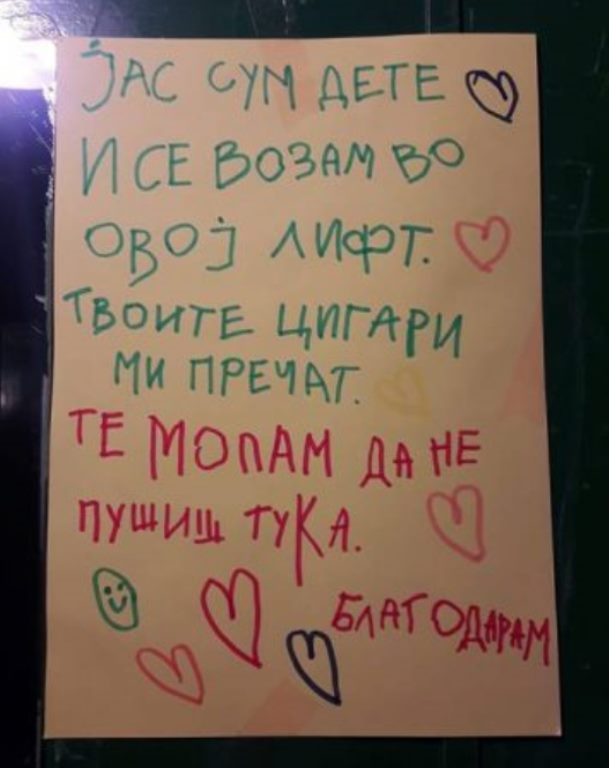 ЈАС СУМ ДЕТЕ
И СЕ ВОЗАМ ВО
ОВОЈ ЛИФТ.
ТВОИТЕ ЦИГАРИ
МИ ПРЕЧАТ.
ТЕ МОПАМ ДА НЕ
ПУШИШ ТУКА.
БЛАГОДАРАМ